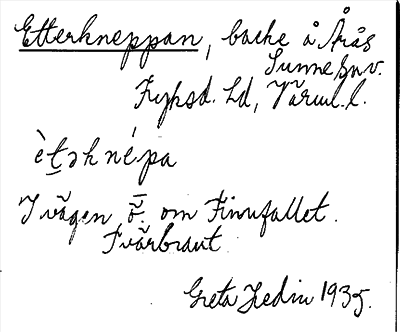 Etterkneppan, backe å Årås
Sunne sn v.
Fryksd. Ld, Värml. l.
ètəknépa
I vägen ö. om Finnfallet.
Tvärbrant
Greta Hedin 1935.